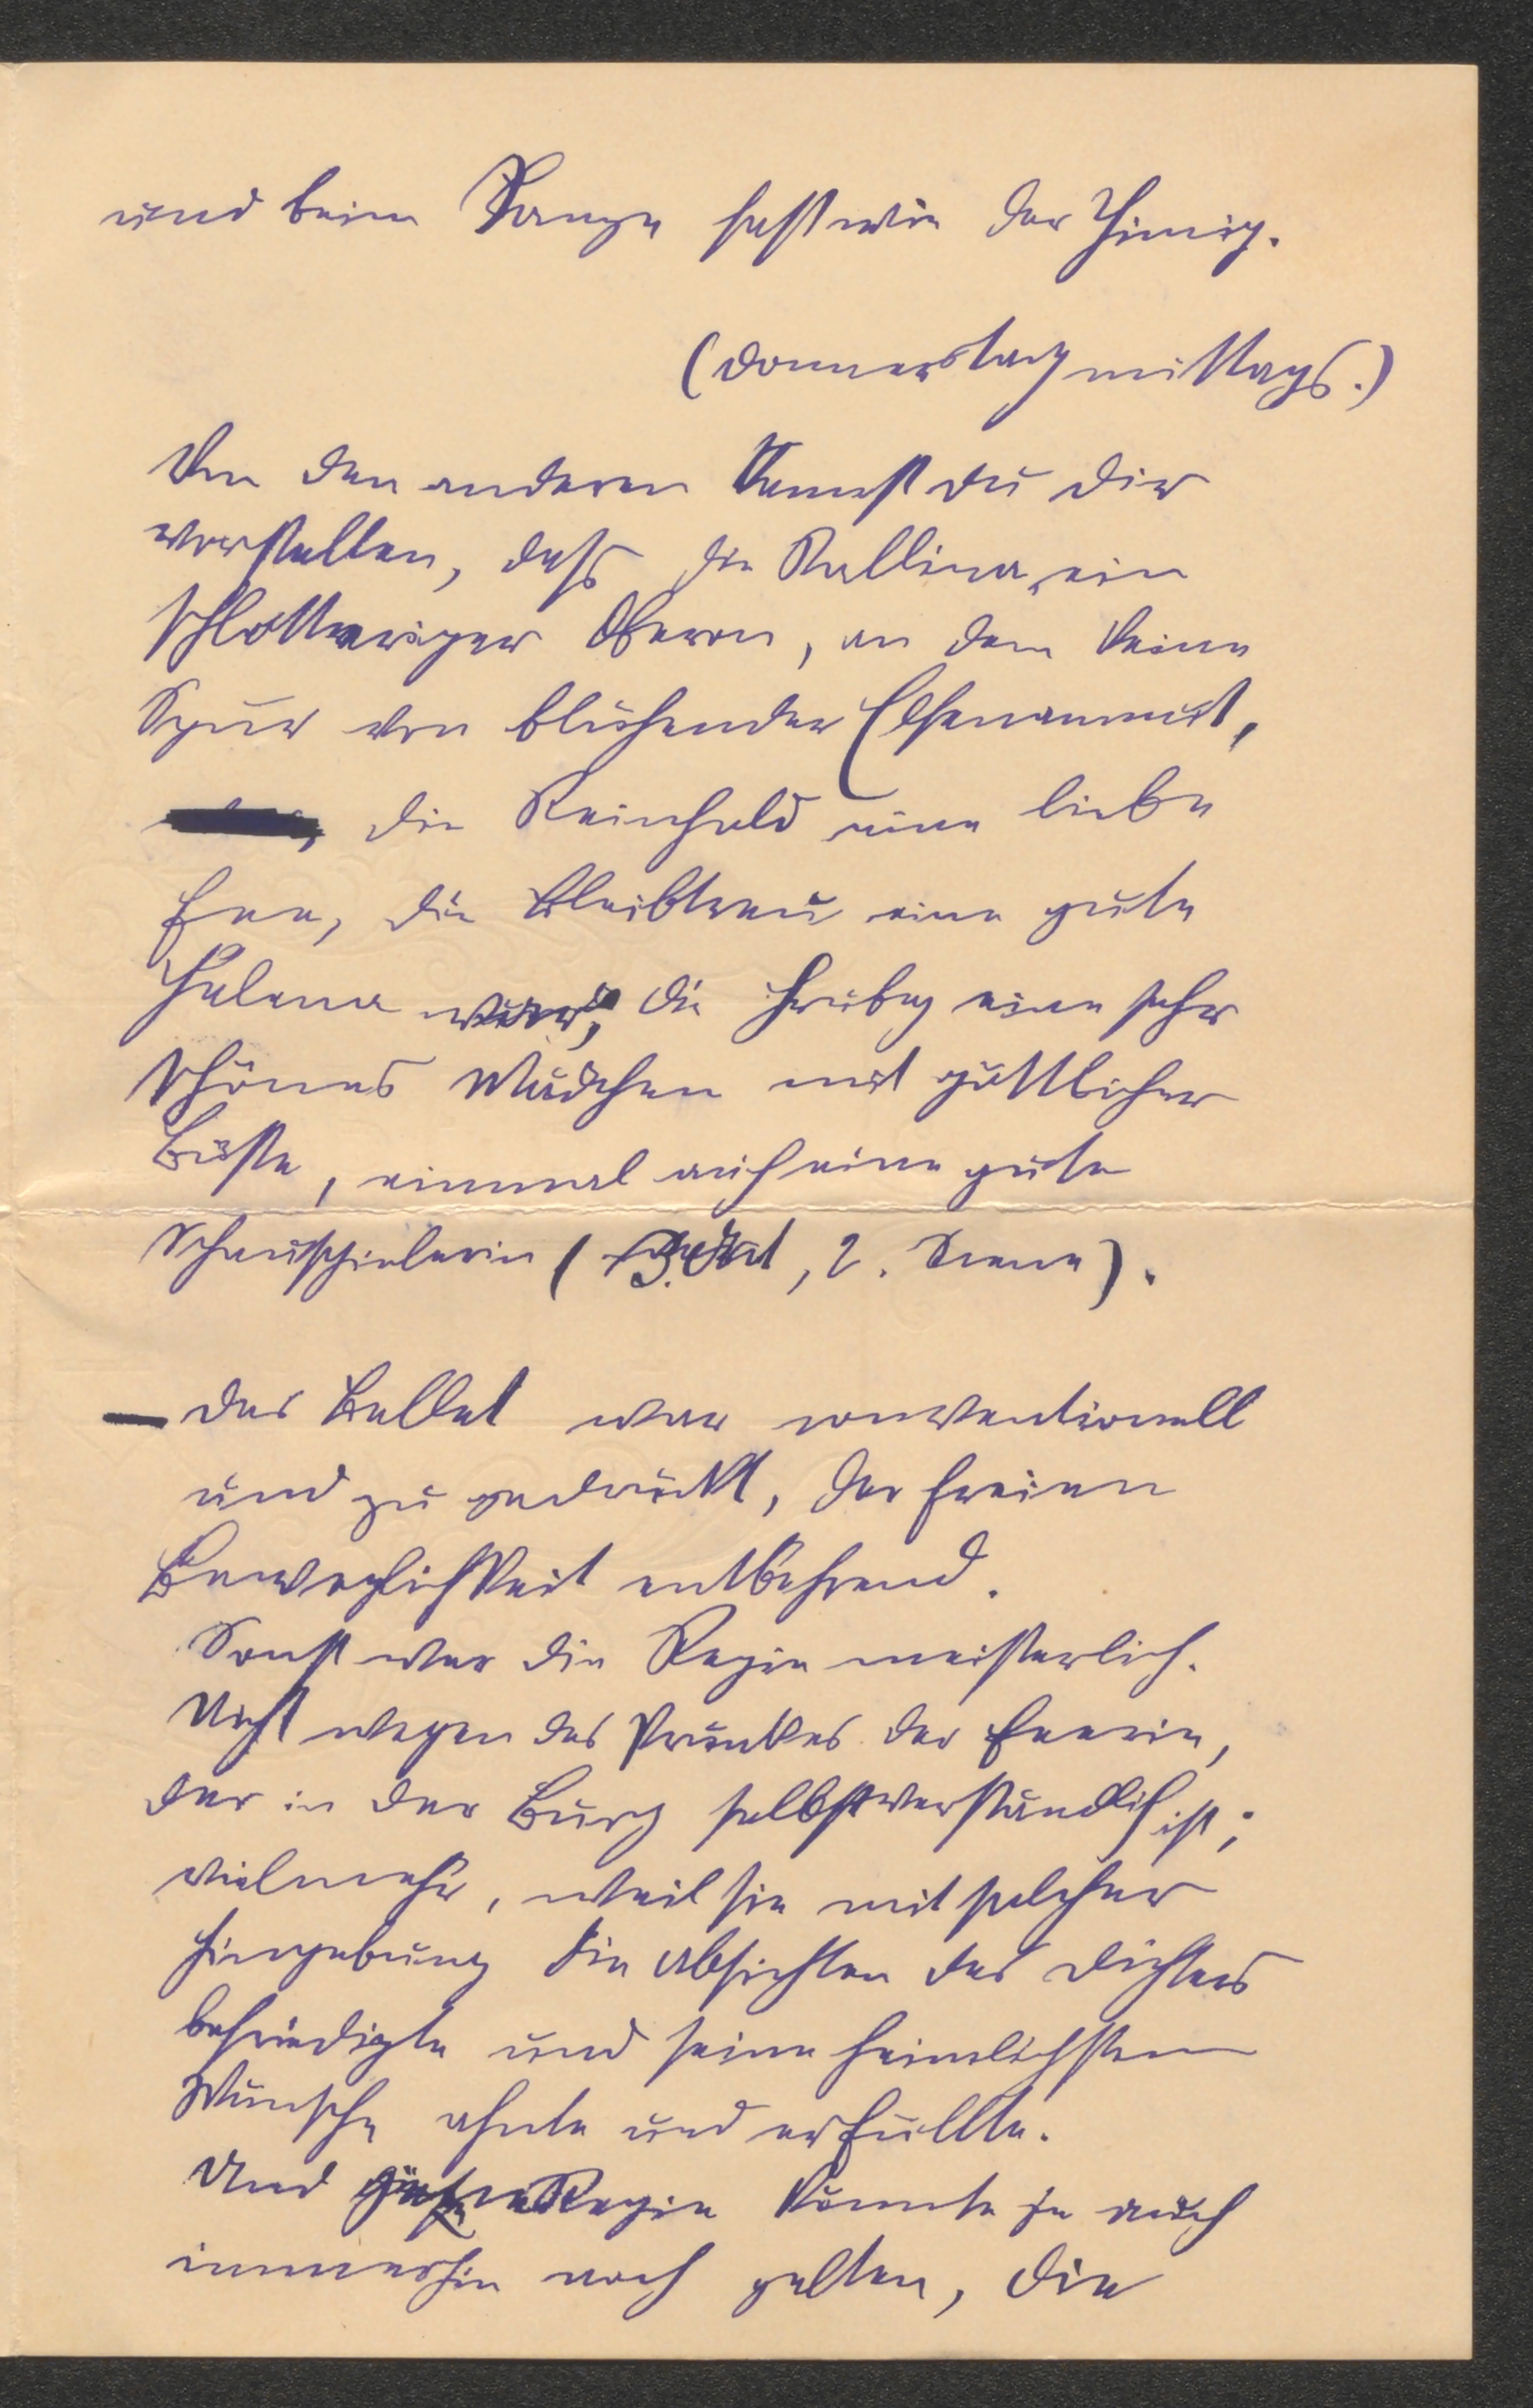 und beim Tanze fast wie der Thimig.
(Donnerstag mittags.)
Von den anderen kannst du dir
vorstellen, daß die Kallina ein
schlottriger Oberon, an dem keine
Spur von blühender Elfenanmut,
die Reinhold eine liebe
Fee, die Bleibtreu eine gute
Helena war, die Hruby eine sehr
schönes Mädchen mit göttlicher
Büste, einmal auch eine gute
Schauspielerin (3. Akt, 2. Scene).
— Das Ballet war conventionell
und zu gedrückt, der freien
Beweglichkeit entbehrend.
Sonst war die Regie meisterlich.
Nicht wegen des Prunkes der Feerie,
der in der Burg selbstverständlich ist;
vielmehr, weil sie mit solcher
Hingebung die Absichten des Dichters
befriedigte und seine heimlichsten
Wünsche ahnte und erfüllte.
Und Regie konnte ja auch
immerhin noch gelten, die